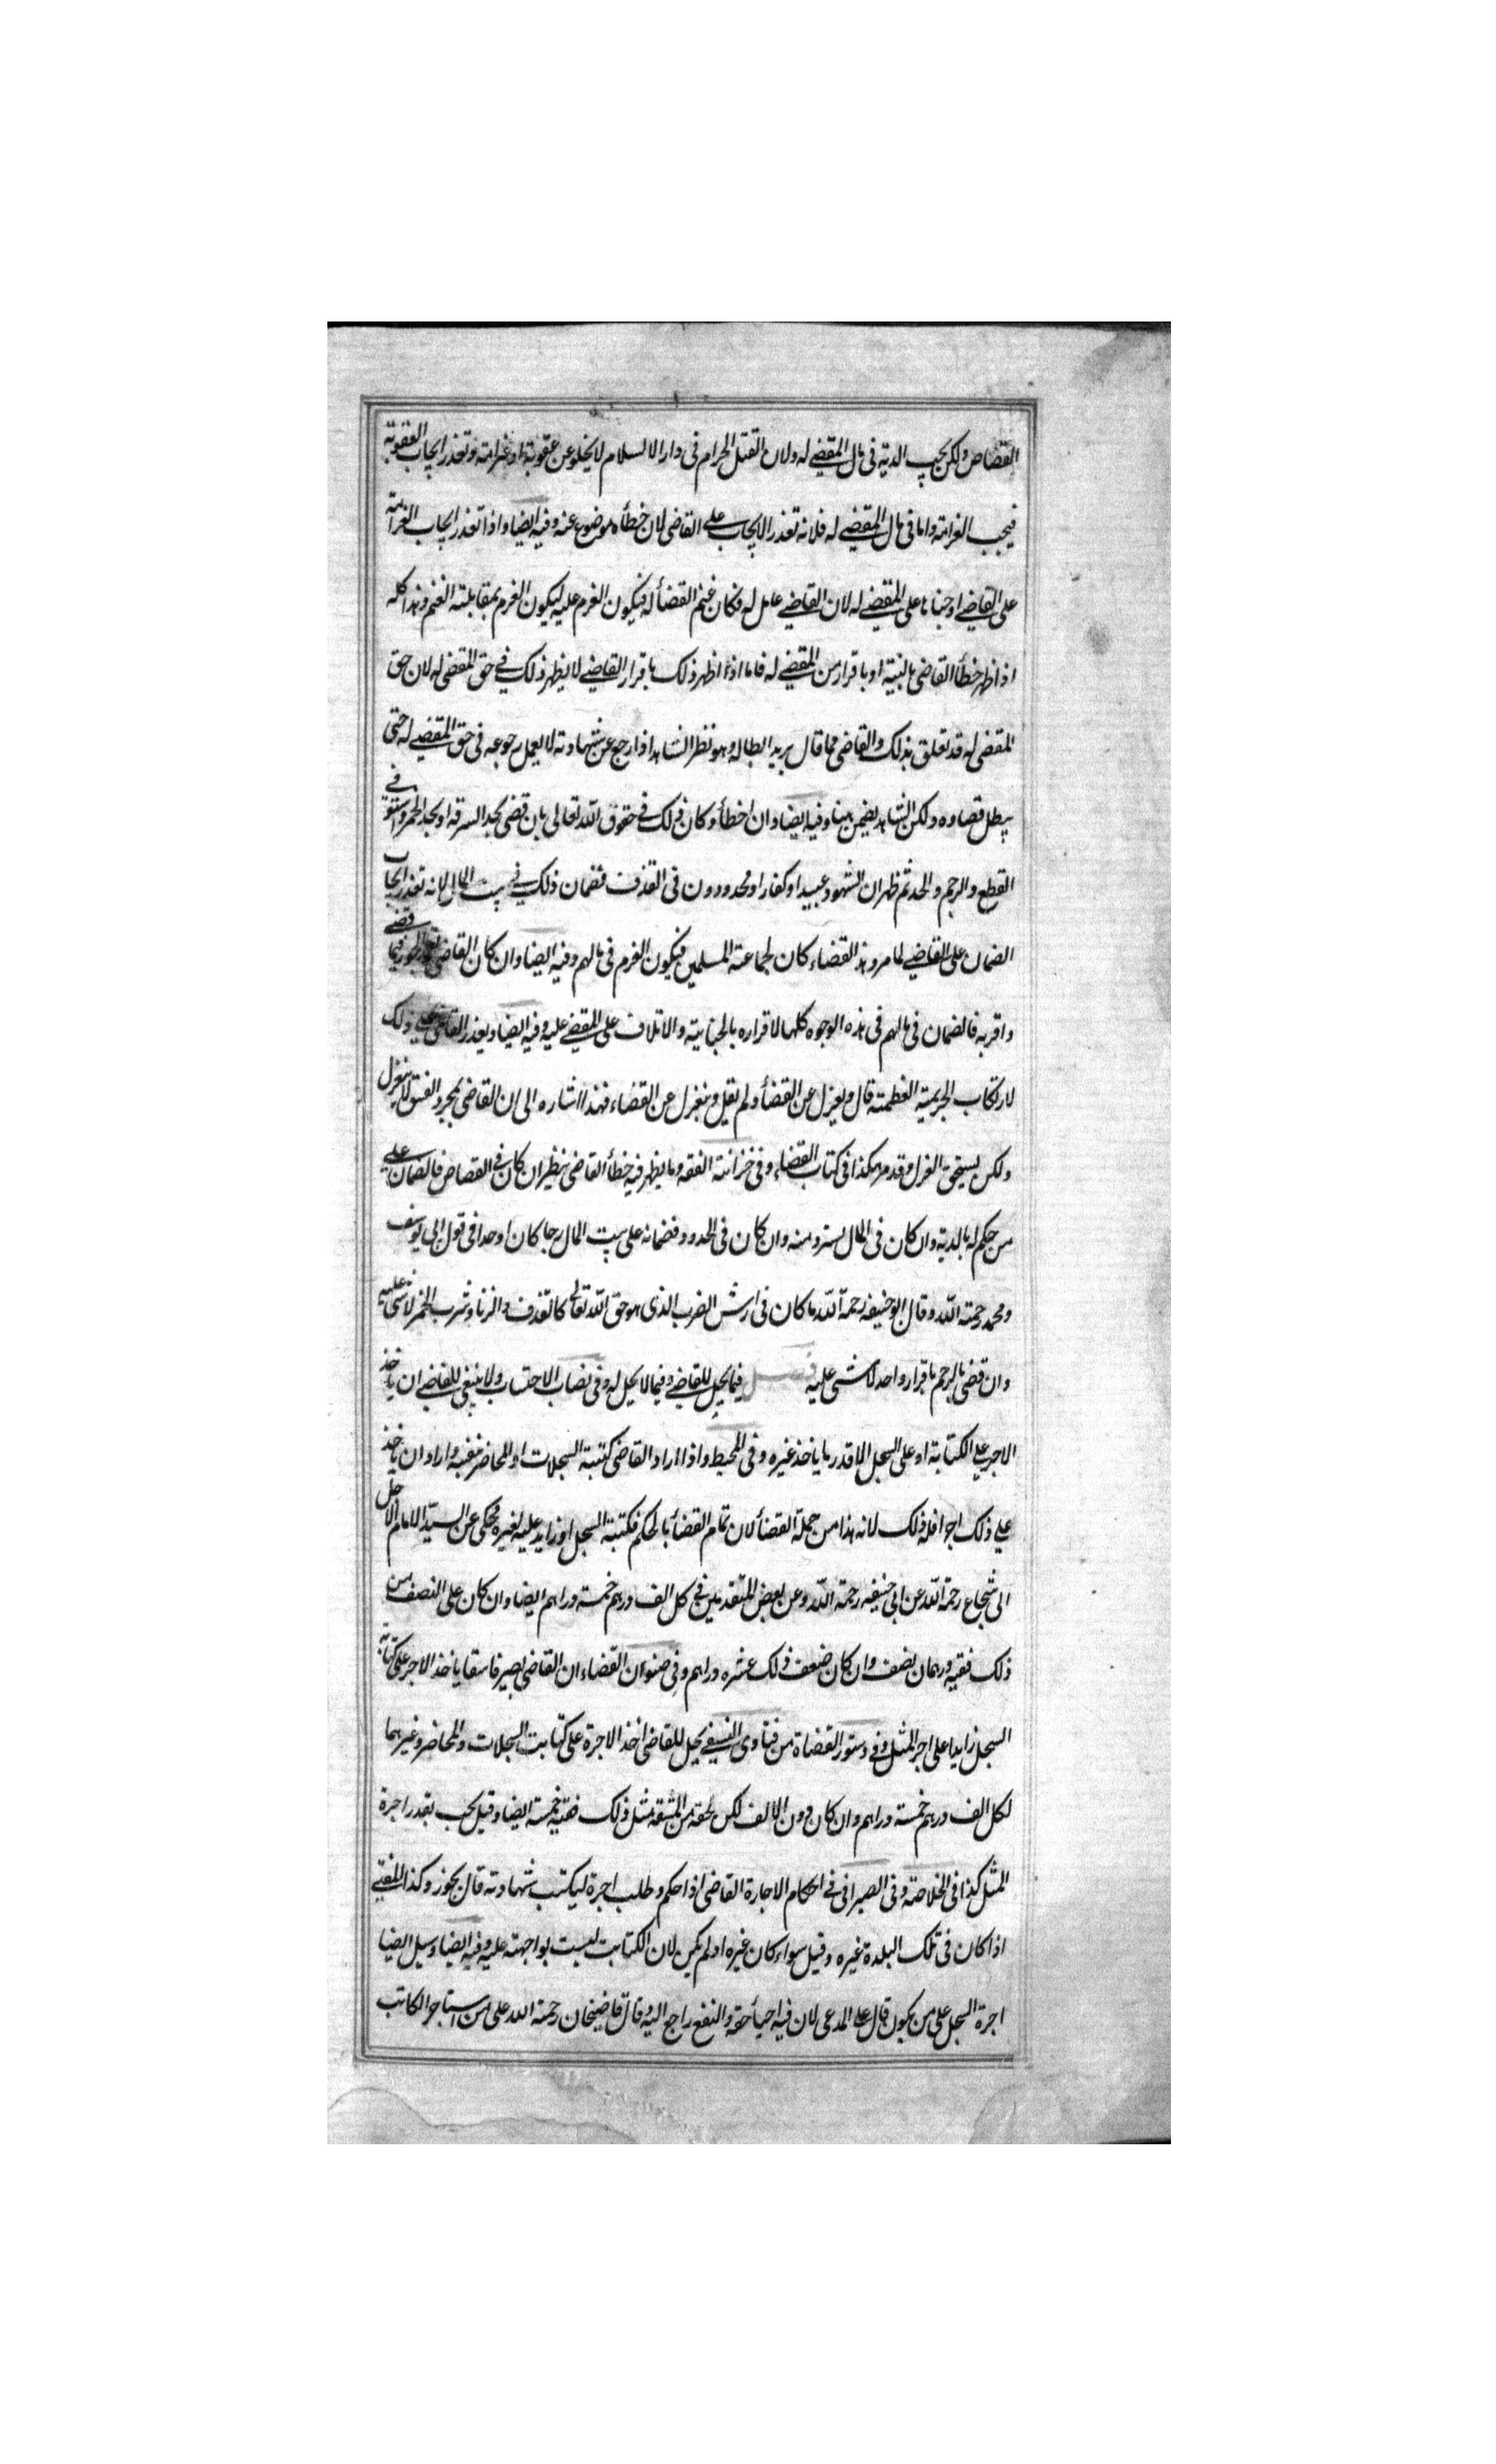 القصاص ولكن يجب الدية فى مال المقضے له ولان القتل الحرام فى دار الاسلام لا يخلو عن عقوبة او غرامة وتعذر ايجاب العقوبة
فيجب الغرامة واما فى مال المقضے له فلانه تعذر الايجاب علے القاضى لان خطأه موضوع عنه وفيه ايضا واذا تعذر ايجاب الغرامة
على القاضے اوجبناها على المقضے له لان القاضے عامل له فكان غنم القضأ له فيكون الغرم عليه ليكون الغرم بمقابلة الغنم وهذا كله
اذا ظهر خطأ القاضى بالبينة او باقرار من المقضے له فاما اذا ظهر ذلك باقرار القاضے لا يظهر ذلك فے حق المقضى له لان حق
المقضى له قد تعلق بذلك والقاضى مما قال يريد ابطاله وهو نظر الشاهد اذا رجع عن شهادته لا يعمل رجوعه فى حق المقضے له حتى
يبطل قضاوه ولكن الشاهد يضمن ههنا وفيه ايضا وان اخطأ وكان ذلك فے حقوق الله تعالى بان قضى بحد السرقة او بحد الخمر واستوفے
القطع والرجم والحد ثم ظهر ان الشهود عبيد او كفار او محدودون فى القذف فضمان ذلك فے بيت المال لانه تعذر ايجاب
الضمان على القاضے لما مر وهذا القضاء كان لجماعة المسلمين فيكون الغرم فى مالهم وفيه ايضا وان كان القاضى تعمد الجور فيما قضے
واقر به فالضمان فى مالهم فى هذه الوجوه كلها لاقراره بالجناية والاتلاف على المقضے عليه وفيه ايضا ويعذر القاضى علے ذلك
لارتكاب الجريمة العظيمة قال ويعزل عن القضأ ولم يقل وينعزل عن القضاء فهذا اشاره الى ان القاضى بمجرد الفسق لا ينعزل
ولكن يستحق العزل وقد مر هكذا فى كتاب القضاء وفى خزانة الفقه وما يظهر فيه خطأ القاضى ينظر ان كان فے القصاص فالضمان علے
من حكم له بالدية وان كان فى المال يسترد منه وان كان فى الحدود فضمانه على بيت المال رجما كان او حدا فى قول ابى يوسف
ومحمد رحمة الله وقال ابو حنيفه رحمة الله ما كان فى ارش الضرب الذى هو حق الله تعالى كالقذف والزنا وشرب الخمر لا شى عليه
وان قضى بالرجم باقرار واحد لا شى عليه فصل فيما يحل للقاضے وفيما لا يحل له وفى نصاب الاحتساب ولا ينبغى للقاضے ان ياخذ
الاجر علے الكتابة او على السجل الا قدر ما ياخذ غيره وفى المحيط واذا اراد القاضى كتبة السجلات او المحاضر بنفسه واراد ان ياخذ
علے ذلك اجرا فله ذلك لانه هذا من جملة القضأ لان تمام القضأ بالحكم فكتبة السجل او زايد عليه لغيره محكى عن السيد الامام الاجل
ابى شجاع رحمة الله عن ابى حنيفه رحمة الله وعن بعض المتقدمين فے كل الف درهم خمسة دراهم ايضا وان كان على النصف من
ذلك فقيه درهمان نصف وان كان ضعف ذلك عشره دراهم وفى صنوان القضاء ان القاضى يصير فاسقا ياخذ الاجر على كتابة
السجل زايدا على اجر المثل وفے دستور القضاة من فتاوى النسفے يحل للقاضى اخذ الاجرة على كتابت السجلات والمحاضر وغيرهما
لكل الف درهم خمسة دراهم وان كان دون الالف لكن لحقه من المشقة مثل ذلك ففيه خمسة ايضا وقيل يجب بقدر اجرة
المثل كذا فى الخلاصة وفى الصيرافى فے احكام الاجارة القاضى اذا حكم وطلب اجرة ليكتب شهادته قال يجوز وكذا المفتے
اذا كان فى تلك البلدة غيره وقيل سواء كان غيره او لم يكن لان الكتابت ليست بواجبته عليه وفيه ايضا وسيل ايضا
اجرة السجل على من يكون قال علے المدعى لان فيه احيأ حقه والنفع راجع اليه وقال قاضيخان رحمة الله على من استاجر الكاتب